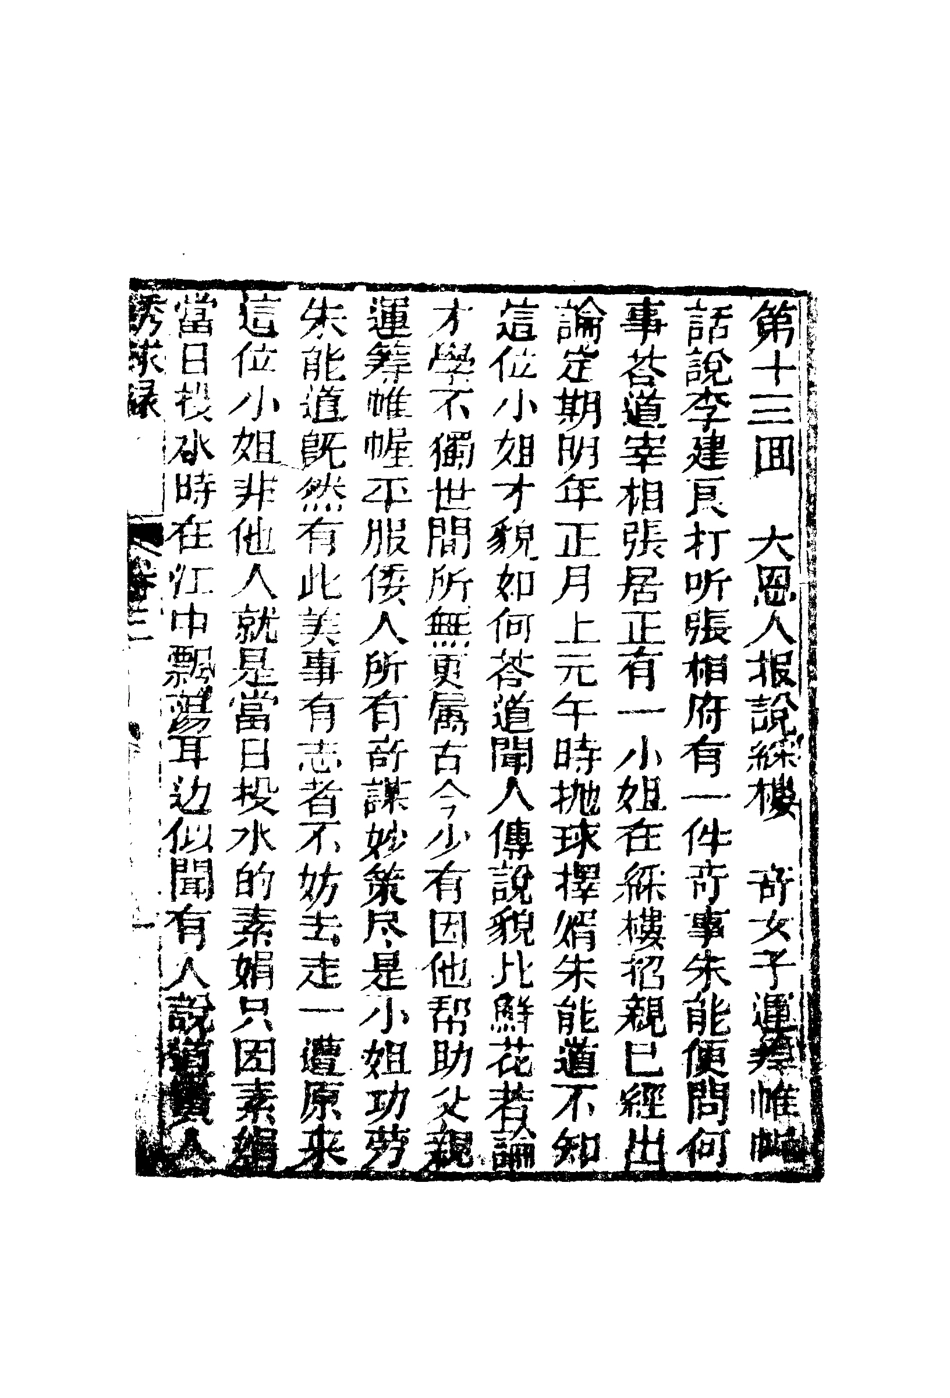 第十三囬　大恩人报說綵樓　奇女子運籌帷幄
話說李建良打听張相府有一件奇事朱能便問何
事荅道宰相張居正有一小姐在綵樓招親已經出
論定期明年正月上元午時抛球擇婿朱能道不知
這位小姐才貌如何荅道聞人傳說貌比鮮花若論
才學不獨世間所無更属古今少有因他帮助父親
運筹帷幄平服倭人所有奇謀妙策尽是小姐功劳
朱能道既然有此美事有志者不妨去走一遭原来
這位小姐非他人就是當日投水的素娟只因素娟
當日投水時在江中飄蕩耳边似聞有人說道貴人
綉球录
卷三
一